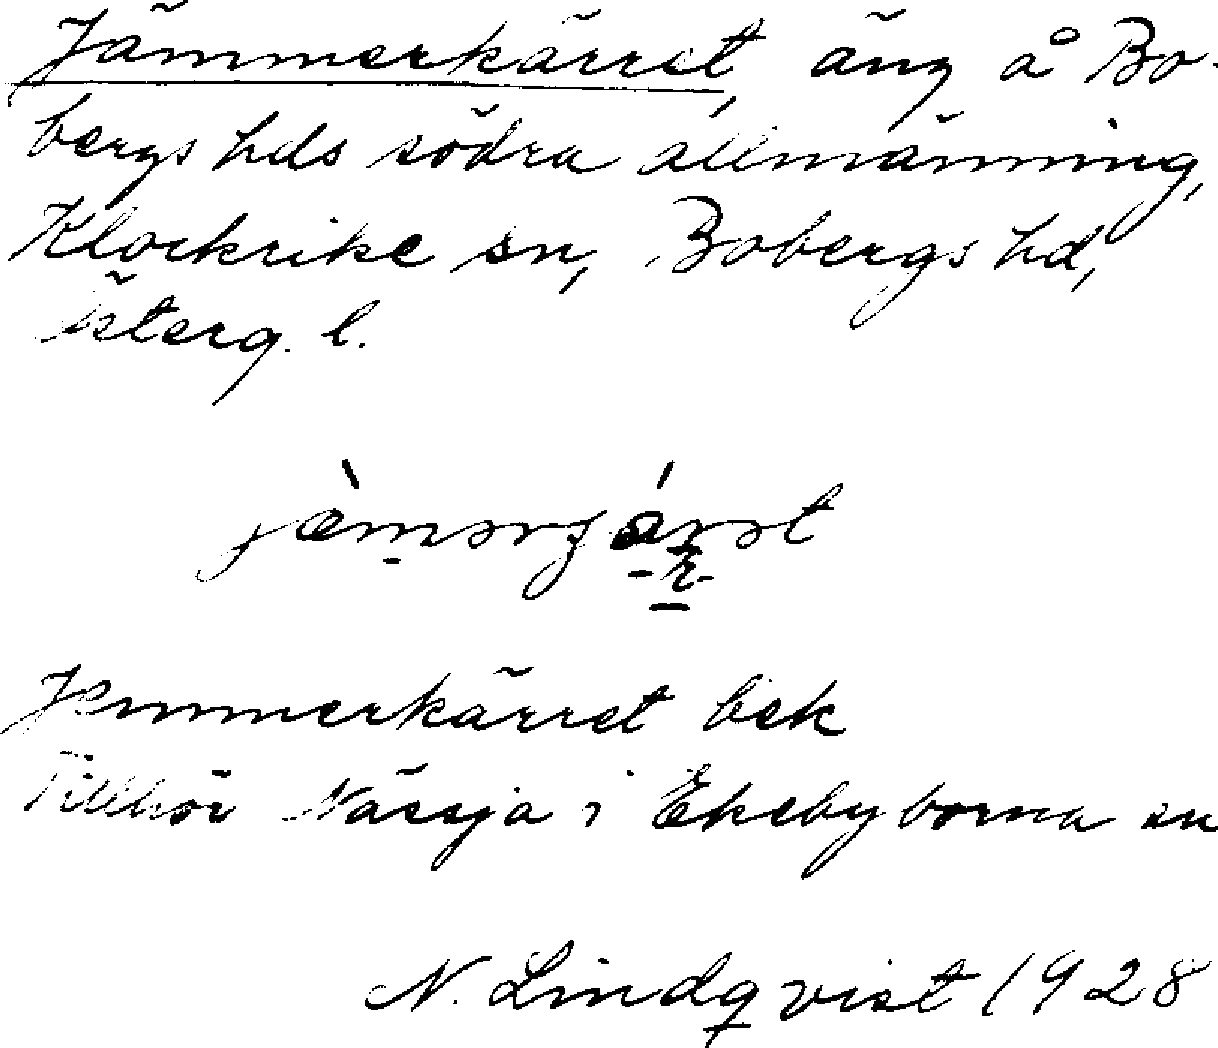 Jämmerkärret, äng å Bo-
bergs hds södra allmänning,
Klockrike sn, Bobergs hd,
Österg. l.
Jemmerkärret bek
Tillhör Nässja i Ekebyborna sn
N. Lindqvist 1928